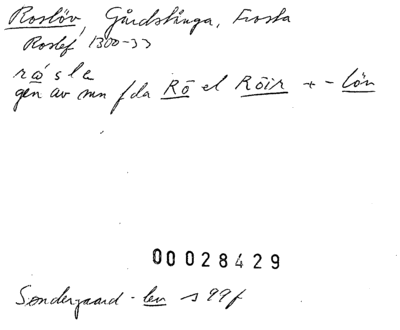 Roslöv, Gårdstånga, Frosta
Roslef 1300-33
rå´sla
gen av mn fda Rō el Rōir + - löv
00028429
Søndergaard -lev s 99f